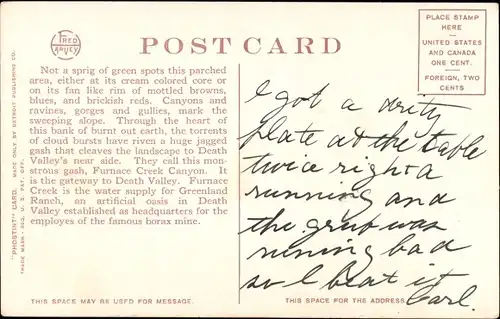 FRED HARVEY
POST CARD
PLACE STAMP
HERE
UNITED STATES
AND CANADA
ONE CENT.
FOREIGN, TWO
CENTS
Not a sprig of green spots this parched
area, either at its cream colored core or
on its fan like rim of mottled browns,
blues, and brickish reds. Canyons and
ravines, gorges and gullies, mark the
sweeping slope. Through the heart of
this bank of burnt out earth, the torrents
of cloud bursts have riven a huge jagged
gash that cleaves the landscape to Death
Valley's near side. They call this mon-
strous gash, Furnace Creek Canyon. It
is the gateway to Death Valley. Furnace
Creek is the water supply for Greenland
Ranch, an artificial oasis in Death
Valley established as headquarters for the
employes of the famous borax mine.
"PHOSTINT" CARD. MADE ONLY BY DETROIT PUBLISHING CO.
TRADE MARK - REG. U. S. PAT. OFF.
THIS SPACE MAY BE USED FOR MESSAGE.
I got a dirty
plate at the table
twice right a
running and
the grub was
running bad
so I beat it
Carl.
THIS SPACE FOR THE ADDRESS